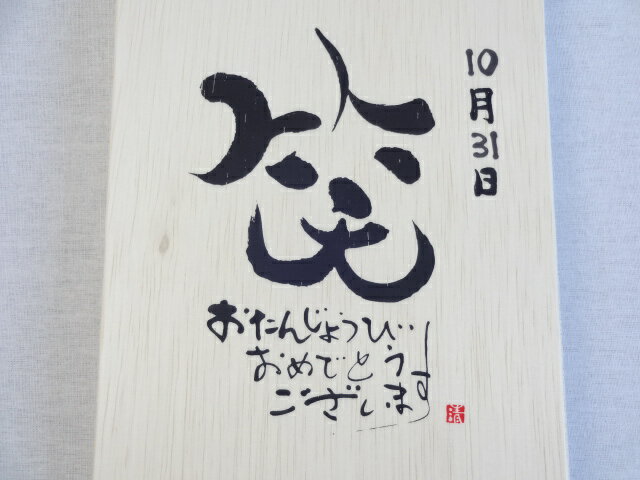 10月31日
笑
おたんじょうび
おめでとう
ございます